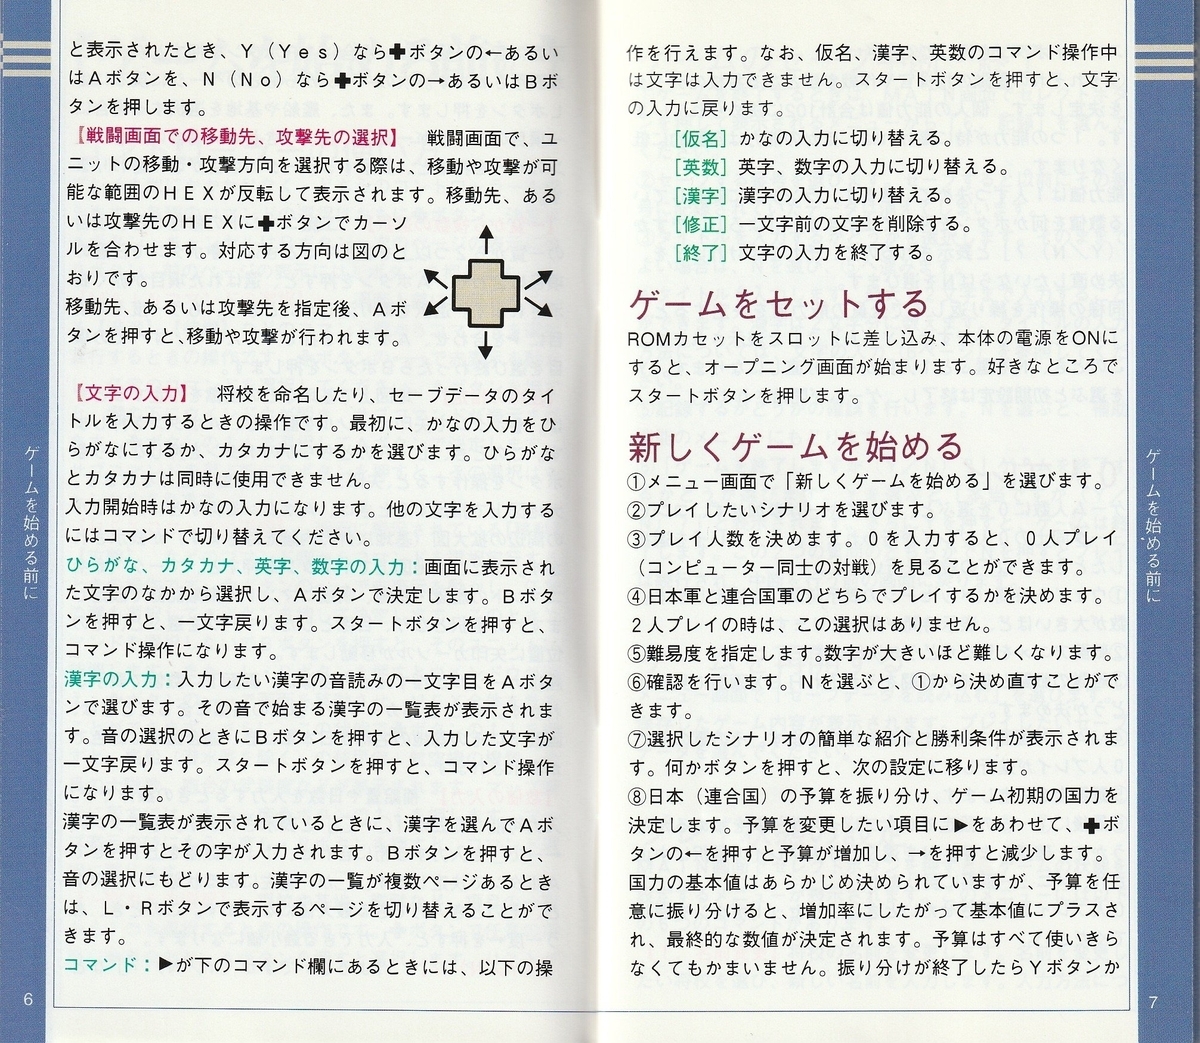 と表示されたとき、Y（Yes）なら✚ボタンの←あるい
はAボタンを、N（No）なら✚ボタンの→あるいはBボ
タンを押します。
【戦闘画面での移動先、攻撃先の選択】　戦闘画面で、ユ
ニットの移動・攻撃方向を選択する際は、移動や攻撃が可
能な範囲のHEXが反転して表示されます。移動先、ある
いは攻撃先のHEXに✚ボタンでカーソ
ルを合わせます。対応する方向は図のと
おりです。
移動先、あるいは攻撃先を指定後、Aボ
タンを押すと、移動や攻撃が行われます。
【文字の入力】　将校を命名したり、セーブデータのタイ
トルを入力するときの操作です。最初に、かなの入力をひ
らがなにするか、カタカナにするかを選びます。ひらがな
とカタカナは同時に使用できません。
入力開始時はかなの入力になります。他の文字を入力する
にはコマンドで切り替えてください。
ひらがな、カタカナ、英字、数字の入力：画面に表示され
た文字のなかから選択し、Aボタンで決定します。Bボタ
ンを押すと、一文字戻ります。スタートボタンを押すと、
コマンド操作になります。
漢字の入力：入力したい漢字の音読みの一文字目をAボタ
ンで選びます。その音で始まる漢字の一覧表が表示されま
す。音の選択のときにBボタンを押すと、入力した文字が
一文字戻ります。スタートボタンを押すと、コマンド操作
になります。
漢字の一覧表が表示されているときに、漢字を選んでAボ
タンを押すとその字が入力されます。Bボタンを押すと、
音の選択にもどります。漢字の一覧が複数ページあるとき
は、L・Rボタンで表示するページを切り替えることがで
きます。
コマンド：▶が下のコマンド欄にあるときには、以下の操
ゲームを始める前に
6
作を行えます。なお、仮名、漢字、英数のコマンド操作中
は文字は入力できません。スタートボタンを押すと、文字
の入力に戻ります。
［仮名］かなの入力に切り替える。
［英数］英字、数字の入力に切り替える。
［漢字］漢字の入力に切り替える。
［修正］一文字前の文字を削除する。
［終了］文字の入力を終了する。
ゲームをセットする
ROMカセットをスロットに差し込み、本体の電源をONに
すると、オープニング画面が始まります。好きなところで
スタートボタンを押します。
新しくゲームを始める
①メニュー画面で「新しくゲームを始める」を選びます。
②プレイしたいシナリオを選びます。
③プレイ人数を決めます。0を入力すると、0人プレイ
（コンピューター同士の対戦）を見ることができます。
④日本軍と連合国軍のどちらでプレイするかを決めます。
2人プレイの時は、この選択はありません。
⑤難易度を指定します。数字が大きいほど難しくなります。
⑥確認を行います。Nを選ぶと、①から決め直すことがで
きます。
⑦選択したシナリオの簡単な紹介と勝利条件が表示されま
す。何かボタンを押すと、次の設定に移ります。
⑧日本（連合国）の予算を振り分け、ゲーム初期の国力を
決定します。予算を変更したい項目に▶をあわせて、✚ボ
タンの←を押すと予算が増加し、→を押すと減少します。
国力の基本値はあらかじめ決められていますが、予算を任
意に振り分けると、増加率にしたがって基本値にプラスさ
れ、最終的な数値が決定されます。予算はすべて使いきら
なくてもかまいません。振り分けが終了したらYボタンか
ゲームを始める前に
7